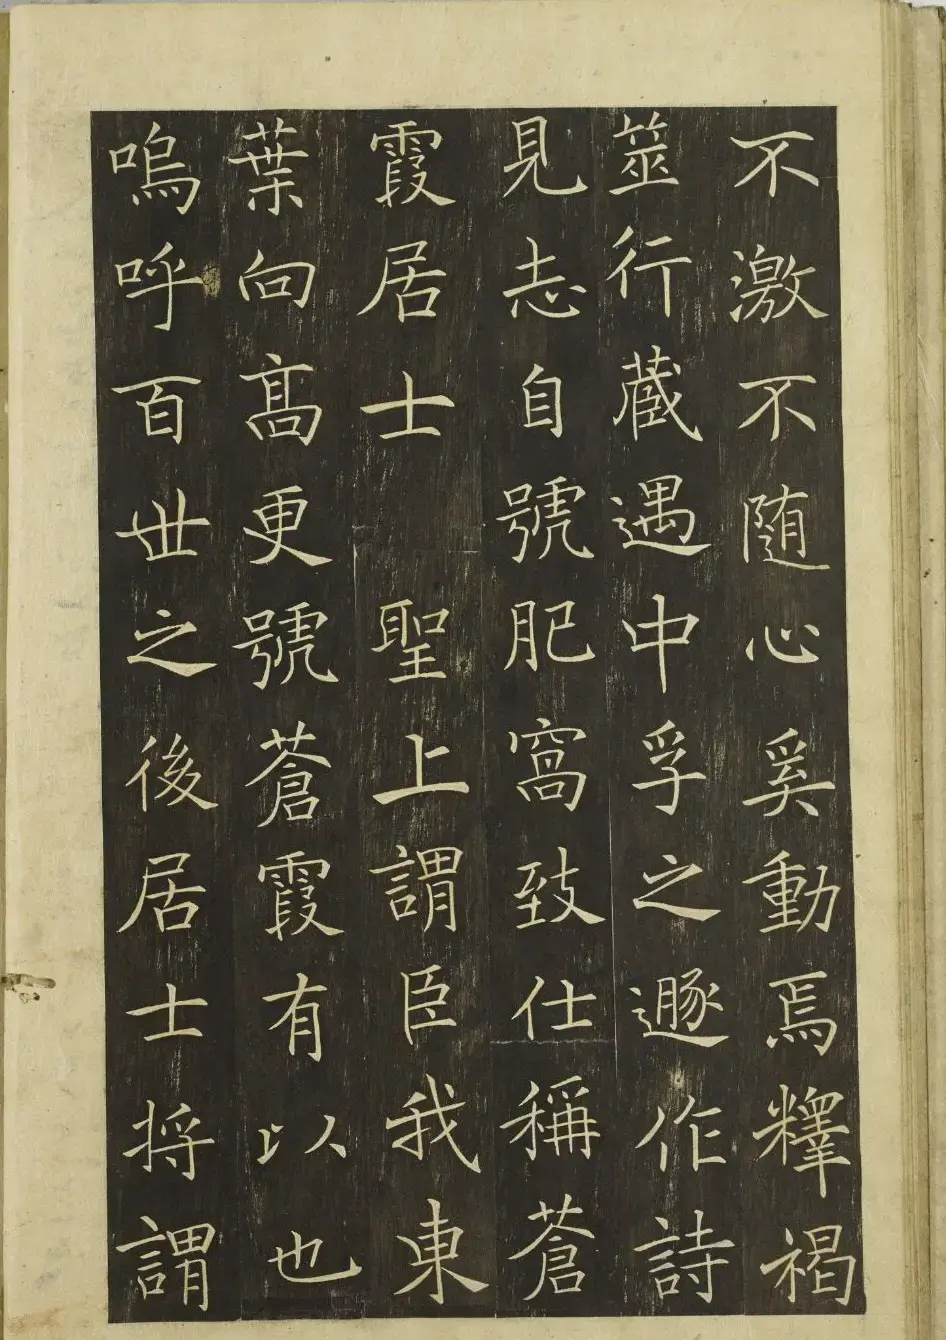 不激不隨心奚動焉釋褐
筮行藏遇中孚之遯作詩
見志自號肥窩致仕稱蒼
霞居士聖上謂臣我東
葉向高更號蒼霞有以也
嗚呼百世之後居士將謂